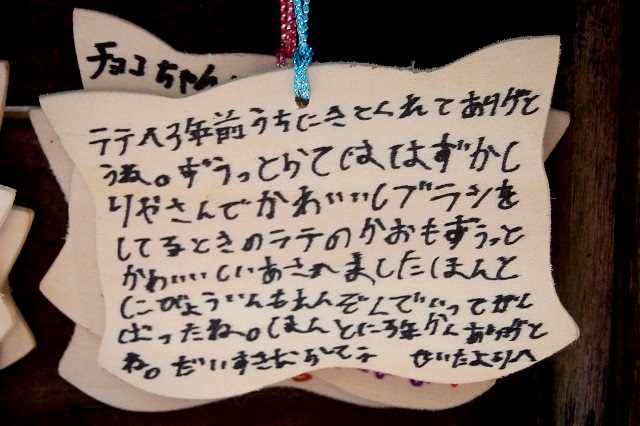 チョコちゃん
ラテへ3年前うちにきてくれてありがと
うね。ずうっとらてははずかし
りやさんでかわいいしブラシを
してるときのラテのかおもずうっと
かわいいしいあされましたほんと
にびょういんもえんぞくでいってがん
ばったね。ほんとに3年かんありがと
ね。だいすきなラテヘ せいたより